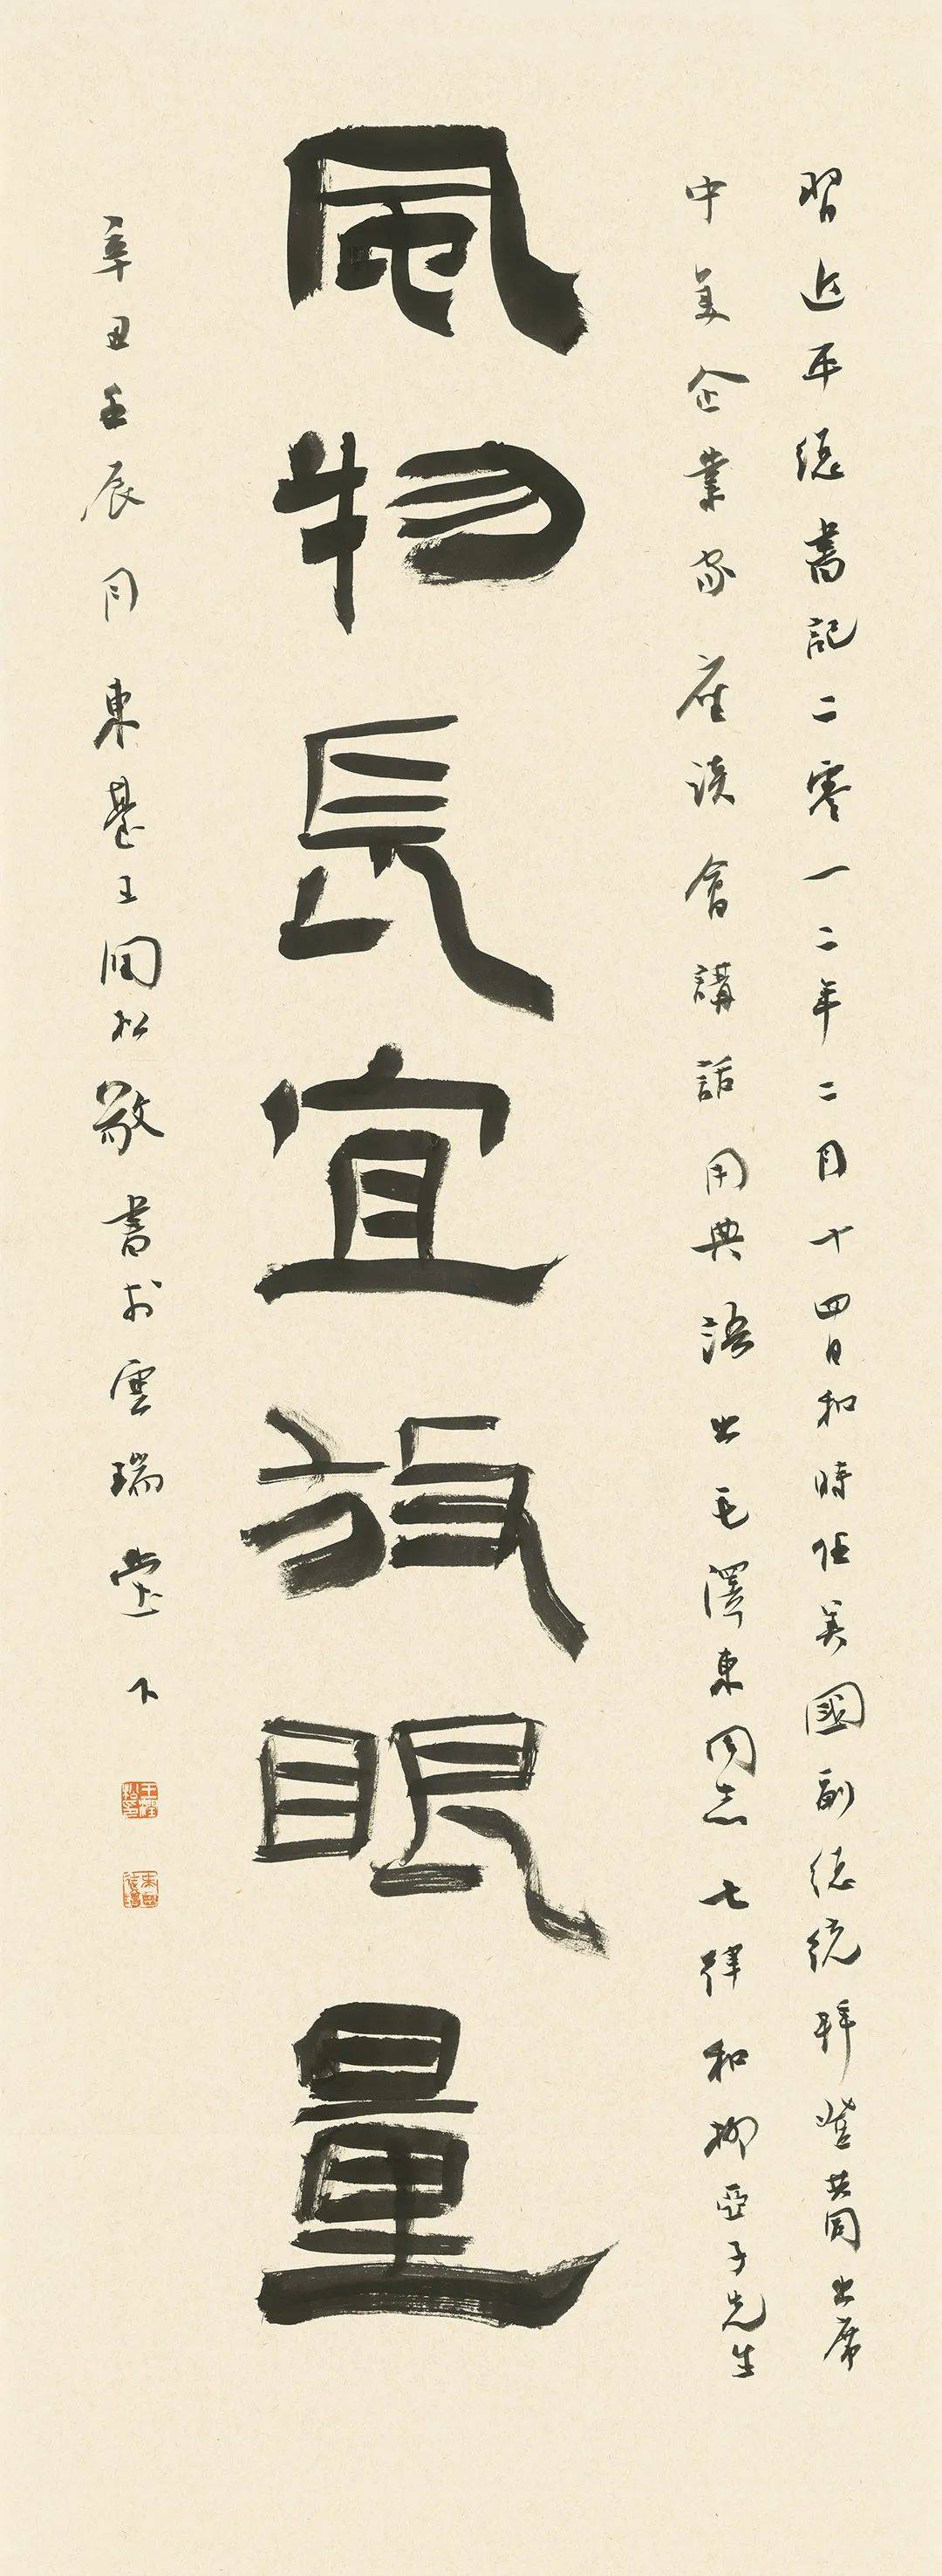 習近平總書記二零一二年二月十四日和時任美國副總統拜登共同出席
中美企業家座談會講話用典語出毛澤東同志七律和柳亞子先生
風物長宜放眼量
辛丑壬辰月東臺王開松敬書於雲瑞堂下